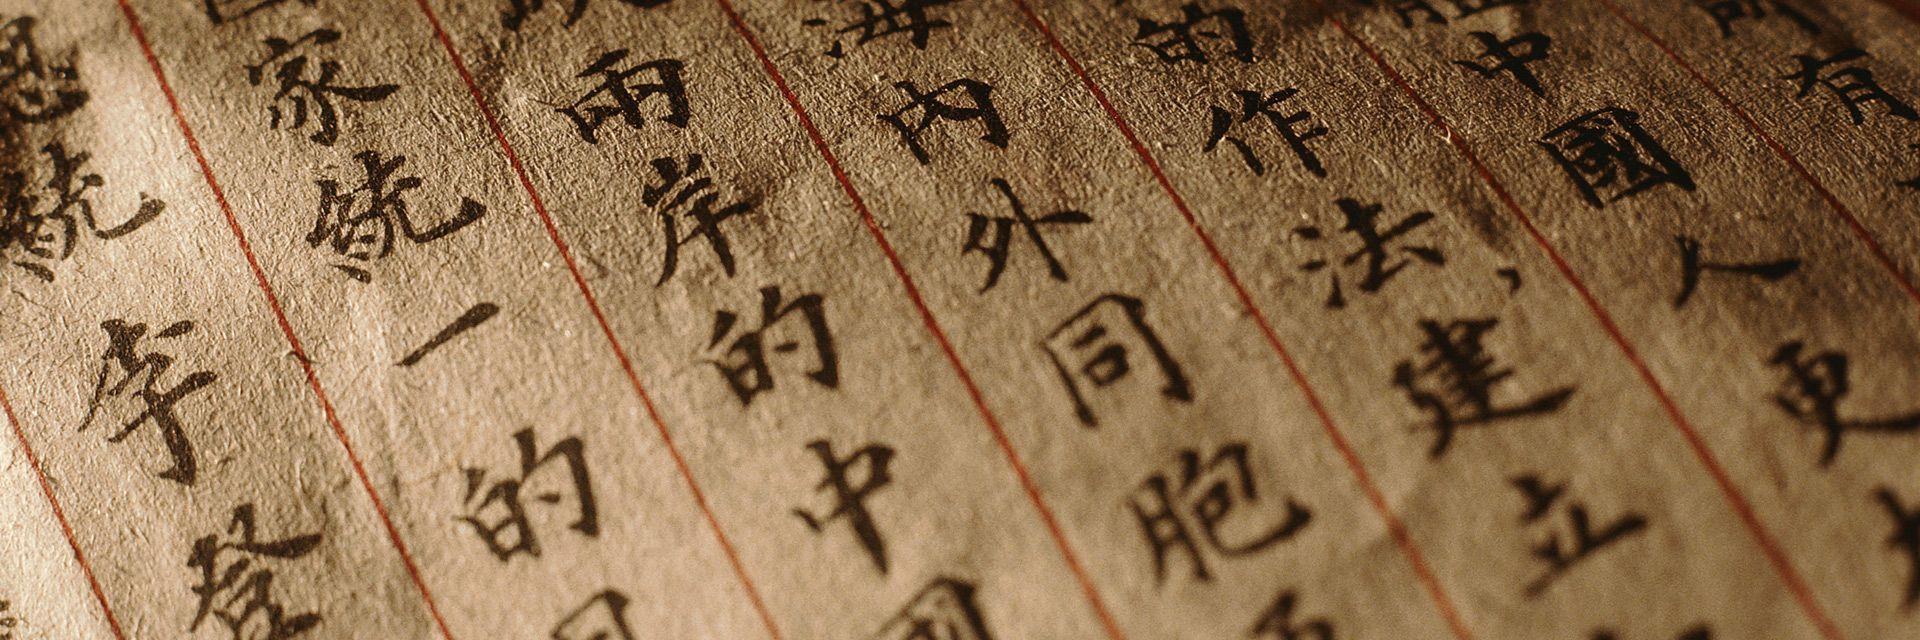 有
中國人更
的作法、建立
海內外同胞
兩岸的中國
家統一的
總統李登